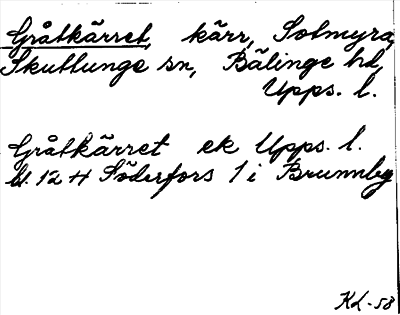 Gråtkärret, kärr, Solmyra,
Skuttunge sn, Bälinge hd,
Upps. l.
Gråtkärret ek Upps. l.
bl. 12 H Söderfors 1 i Brunnby
KL-58